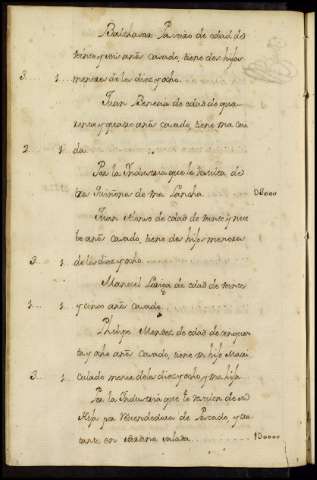 Balthasar Paseiro de edad de
treinta y seis añs casado, tiene dos hijos
3 . . . 1 . . . menores de los diez y ocho.
Juan de edad de qua
renta y quatro añs casado, tiene una cria
2 . . . 1 . . . da
Por la Industria que le resulta de
tra de una Lancha D8000
Juan Alonso de edad de veinte y nue
be añs casado, tiene dos hijos menores
3 . . . 1 . . . de los diez y ocho.
Manuel de edad de veinte
1 . . . 1 . . . y cinco añs casado
Phelipe Mendez de edad de cinquen
ta y ocho añs casado, tiene un hijo Matri
3 . . . 1 . . . culado menor de los diez y ocho, y una hija
Por la Industria que le resulta de su
Hija por Revendedora de Pescado, y tra
tante en salada